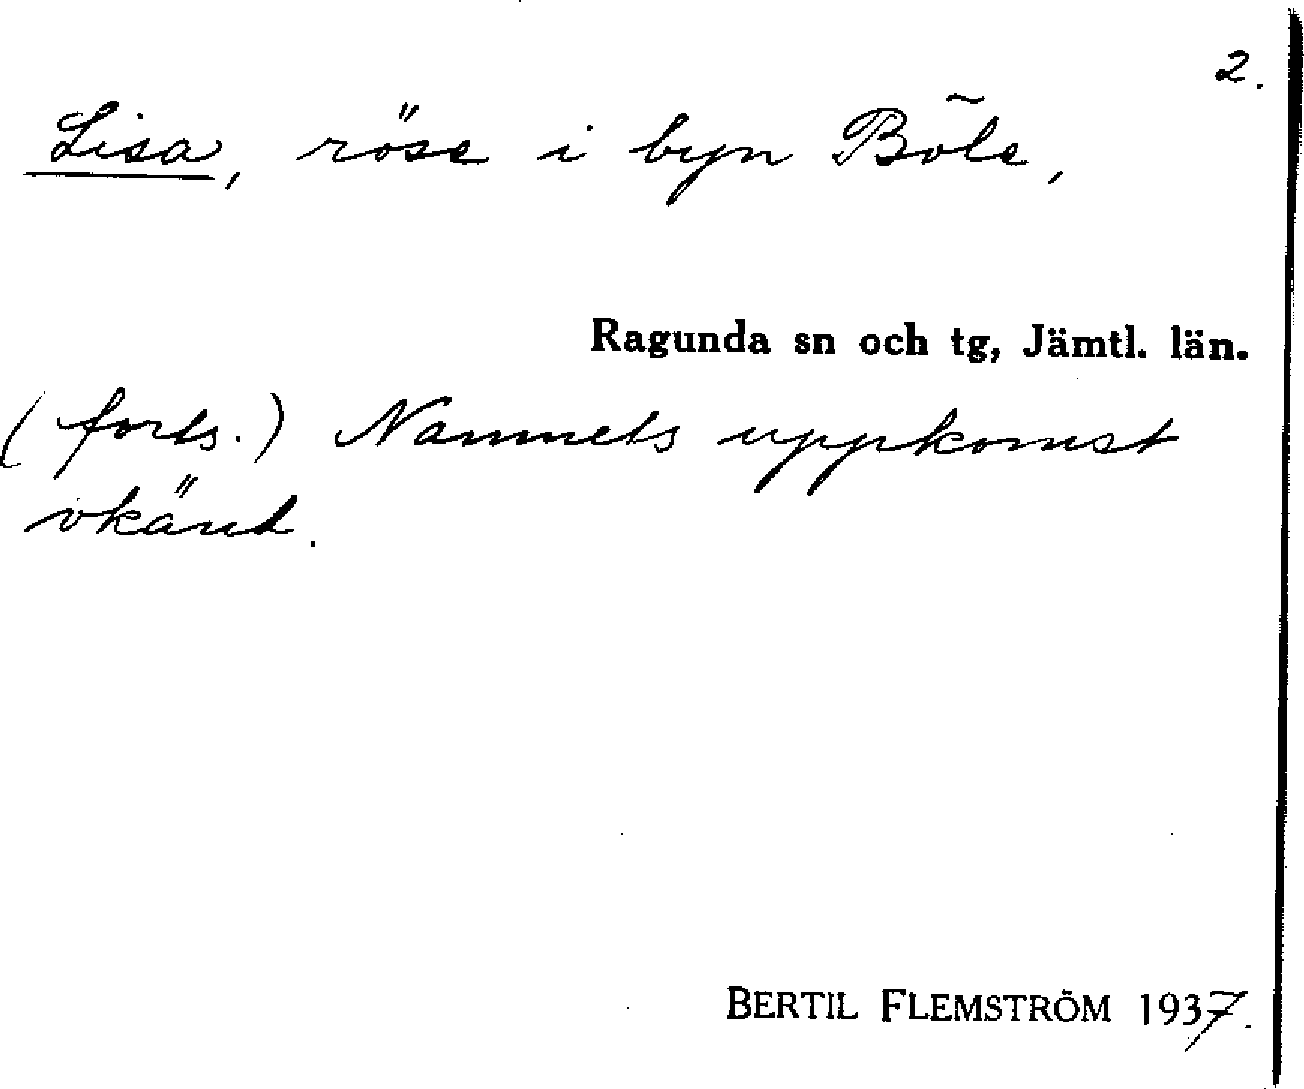 2.
Lisa, röse i byn Böle,
Ragunda sn och tg, Jämtl. län.
(forts.) Namnets uppkomst
okänd.
BERTIL FLEMSTRÖM 1937.